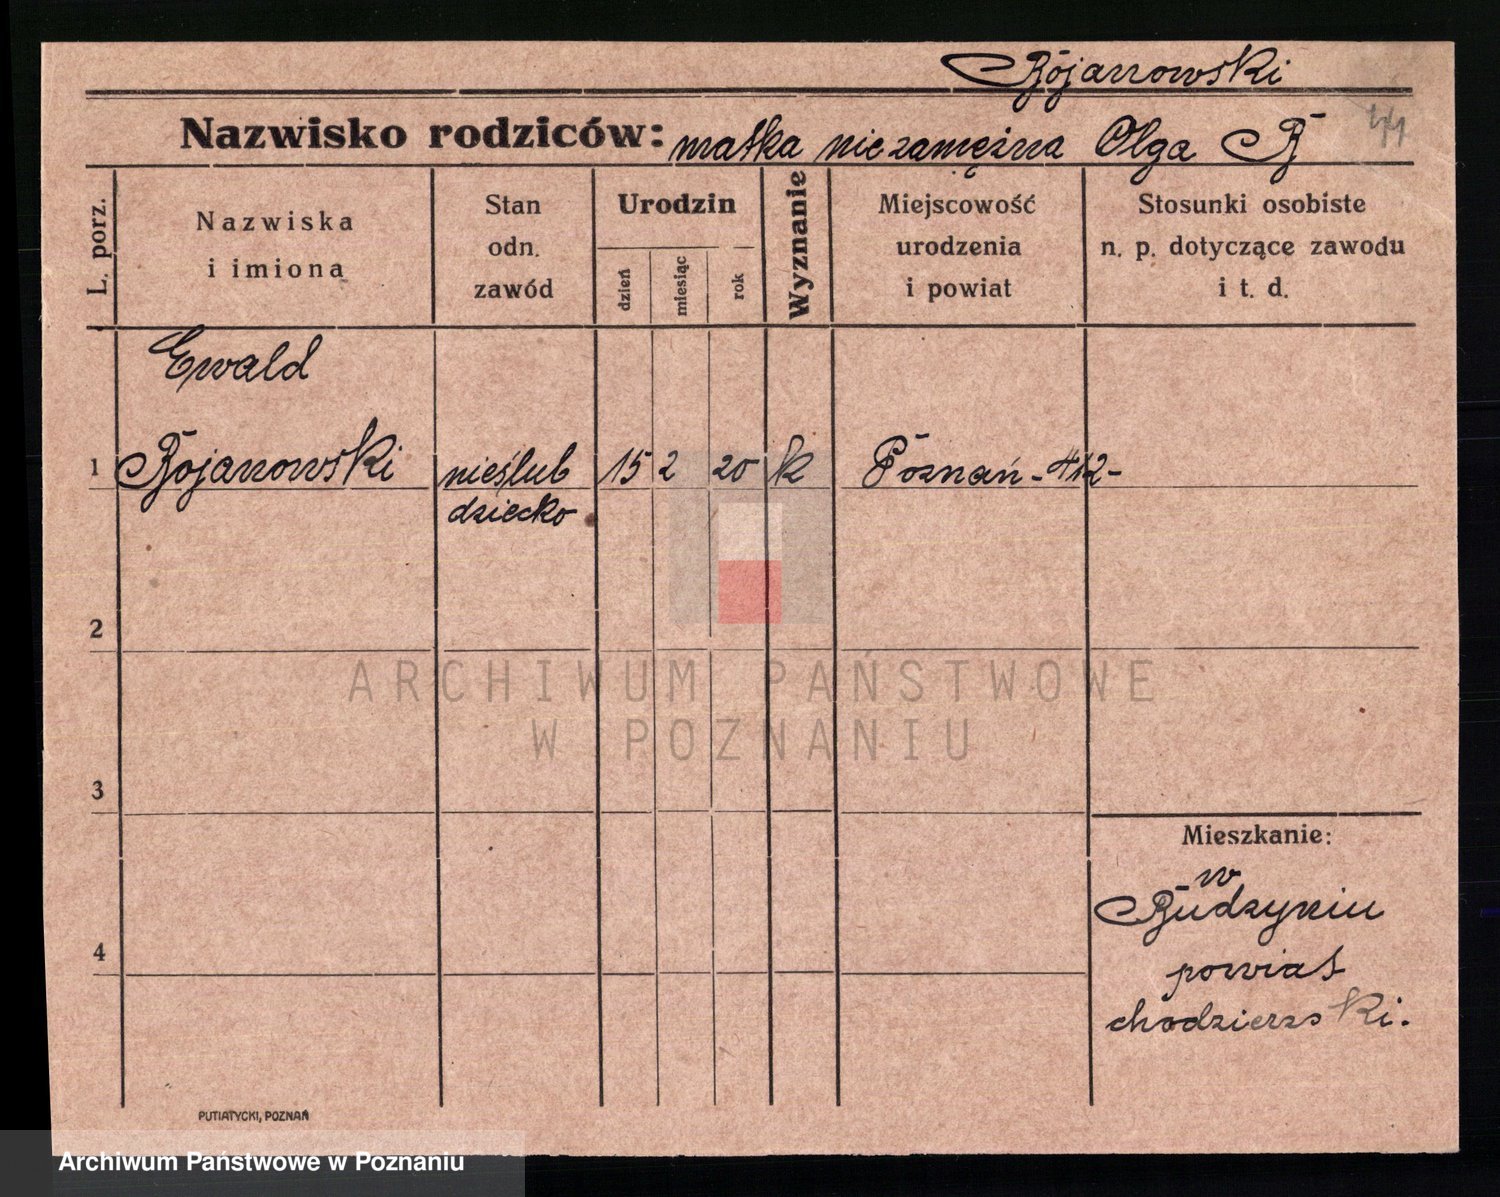 Bojanowski
Nazwisko rodziców: matka niezamężna Olga B
L. porz.
Nazwiska
i imiona
Stan
odn.
zawód
Urodzin
dzień
miesiąc
rok
Wyznanie
Miejscowość
urodzenia
i powiat
Stosunki osobiste
n. p. dotyczące zawodu
i t. d.
Ewald
1 Bojanowski nieślub 15 2 20 k Poznań - 412 -
dziecko
2
ARCHIWUM PAŃSTWOWE
W POZNANIU
3
Mieszkanie:
w
Budzyniu
4
powiat
chodzierski.
PUTIATYCKI, POZNAŃ
Archiwum Państwowe w Poznaniu